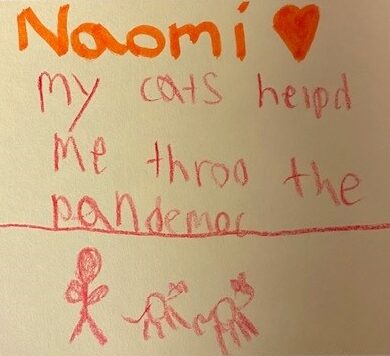 Naomi
My cats helpd
me throo the
pandemoc